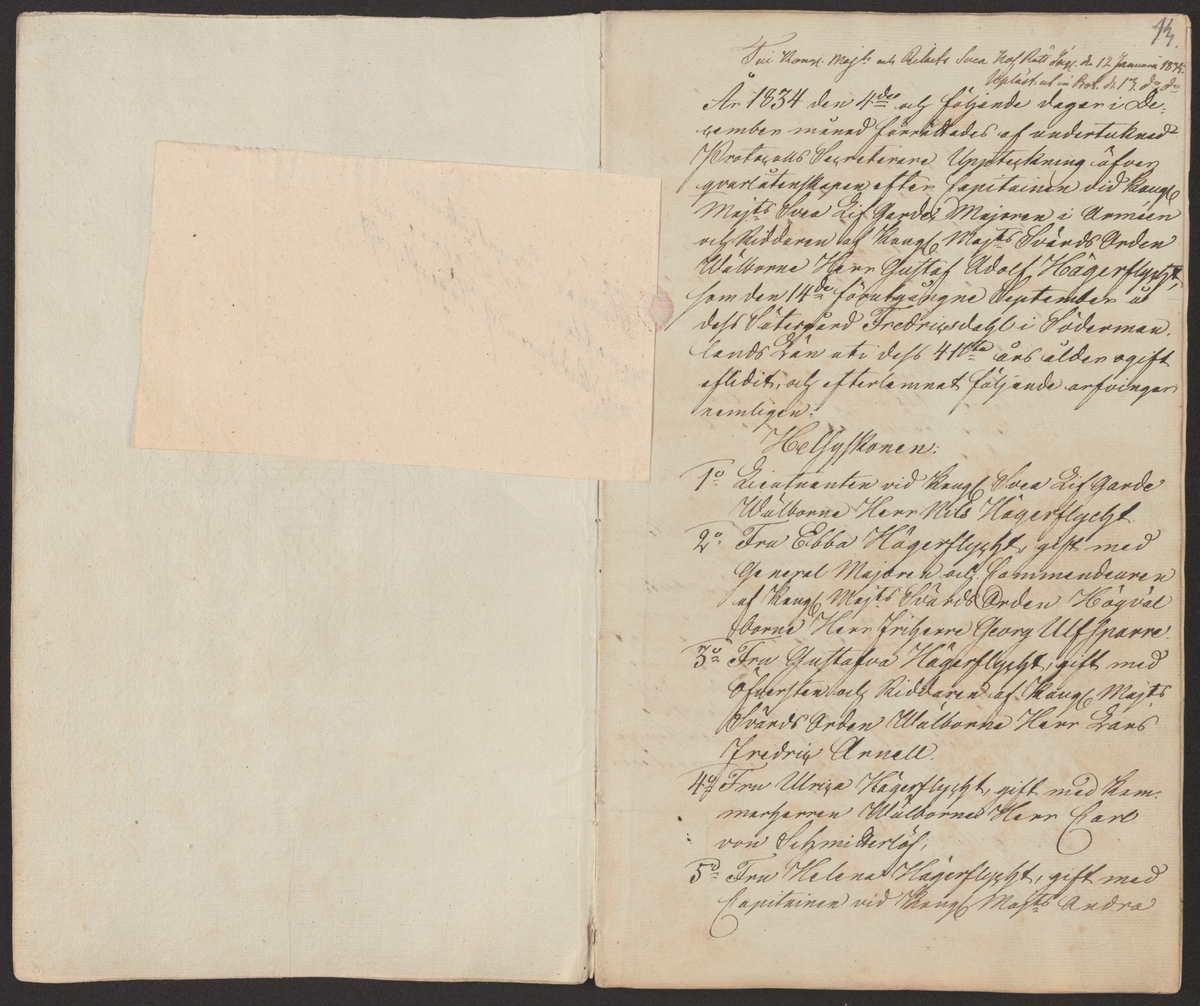 13.
Till Kongl. Majts och Rikets Svea Hof Rätt Ingf. d. 12 Januarii 1835.
Uppläst ut in Prot. d. 13. do do
År 1834 den 4de och följande dagar i De-
cember månad förrättades af undertecknad
Protocolls Secreterare Uppteckning öfver
qvarlåtenskapen efter Capitainen vid Kongl
Majts Svea Lif Garde, Majoren i Arméen
och Riddaren af Kongl Majts Svärds Orden
Wälborne Herr Gustaf Adolf Hägerflycht,
som den 14de förutgångne September å
dess Sätesgård Fredricsdahl i Söderman-
lands Län uti dess 41sta års ålder ogift
aflidit, och efterlemnat följande arfvingar
nemligen:
Helsyskonen:
1o Lieutnanten vid Kongl Svea Lif Garde
Wälborne Herr Nils Hägerflycht
2o Fru Ebba Hägerflycht, gift med
General Majoren och Commendeuren
af Kongl Majts Svärds Orden Högväl
borne Herr Friherre Georg Ulf Sparre
3o Fru Gustafva Hägerflycht, gift med
Öfversten och Riddaren af Kongl Majts
Svärds Orden Wälborne Herr Lars
Fredric Arnell.
4o Fru Ulrica Hägerflycht, gift med Kam-
marherren Wälborne Herr Carl
von Schmitterlöf,
5o Fru Helena Hägerflycht, gift med
Capitainen vid Kongl Majts Andra